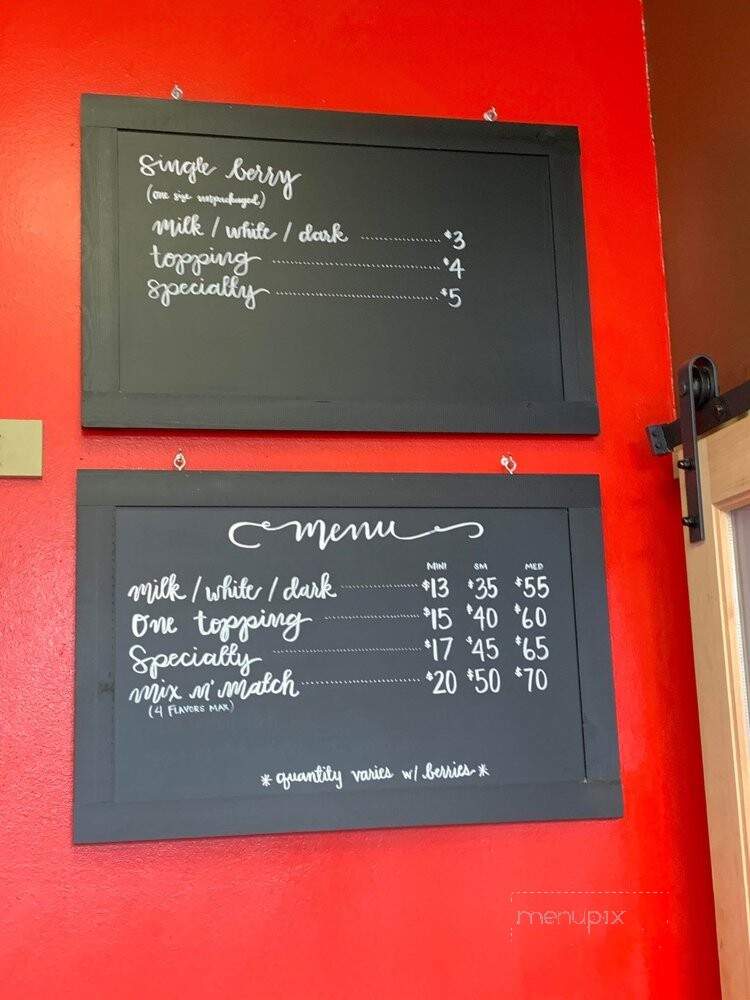 single berry
(one size unpackaged)
milk / white / dark ........ $3
topping ........ $4
specialty ........ $5
menu
MINI SM MED
milk / white / dark ........ $13 $35 $55
One topping ........ $15 $40 $60
Specialty ........ $17 $45 $65
mix n' match ........ $20 $50 $70
(4 FLAVORS MAX)
*quantity varies w/ berries*
menupix